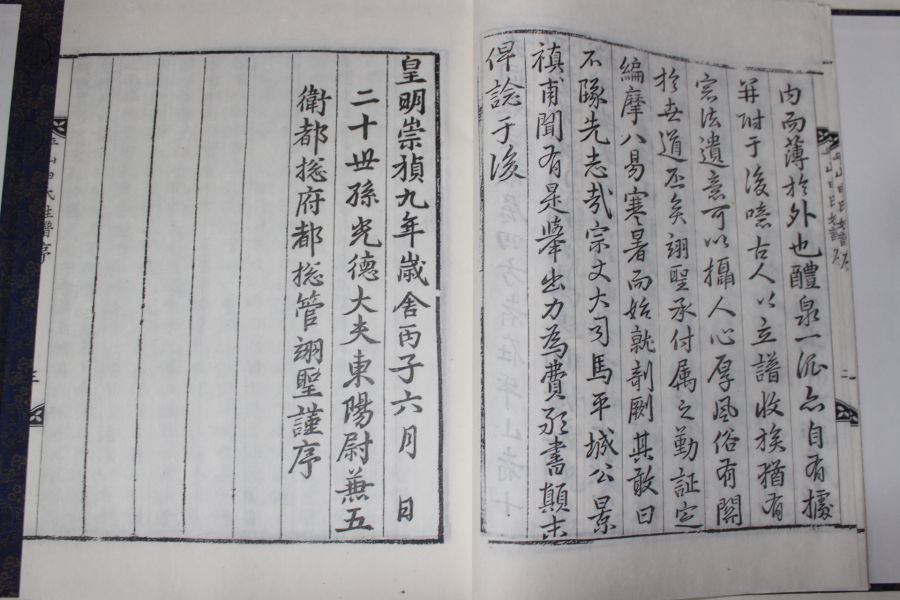 內而薄於外也醴泉一派亦自有據
並附于後噫古人以立譜收族猶有
宗法遺意可以攝人心厚風俗有關
於世道丕矣翊聖承付属之勤証定
編摩八易寒暑而始就剞劂其敢曰
不隊先志哉宗丈大司馬平城公景
禛甫聞有是擧出力為費敬書顛末
俾諗于後
皇明崇禎九年歲舍丙子六月 日
二十世孫光德大夫東陽尉兼五
衛都摠府都摠管翊聖謹序
平山申氏姓譜序
二
平山申氏姓譜序
三